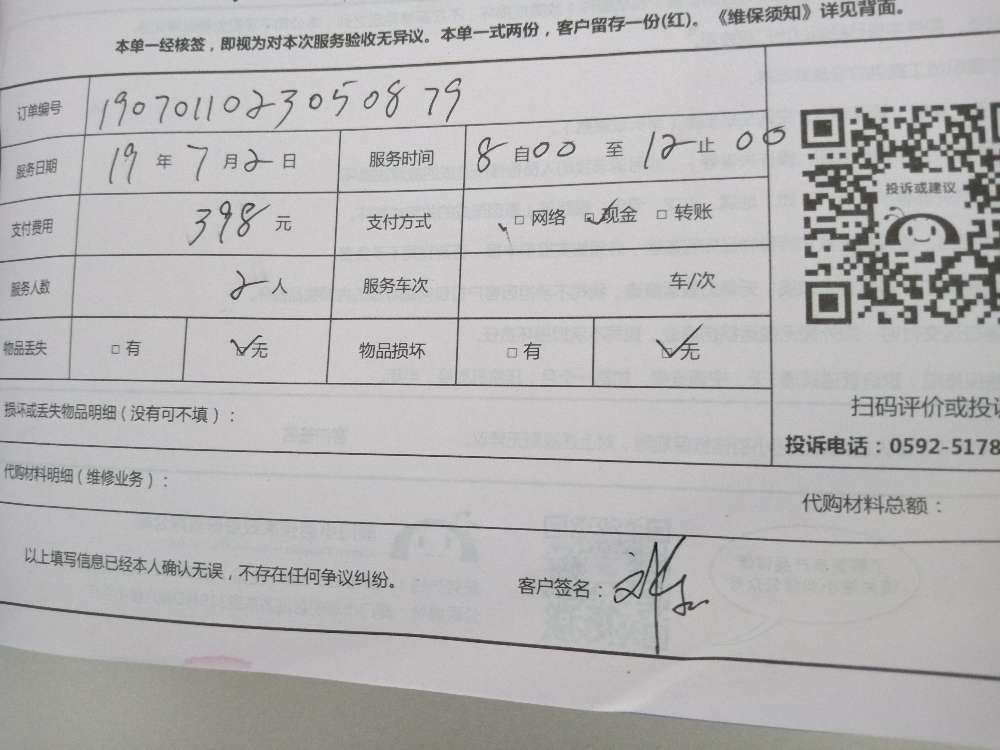 本单一经核签，即视为对本次服务验收无异议。本单一式两份，客户留存一份(红)。《维保须知》详见背面。
订单编号 1907011023050879
服务日期 19 年 7 月 2 日 服务时间 8 自 00 至 12 止 00
支付费用 398 元 支付方式 □ 网络 ☑ 现金 □ 转账
服务人数 2 人 服务车次 车/次
物品丢失 □ 有 ☑ 无 物品损坏 □ 有 ☑ 无
投诉或建议
扫码评价或投诉
投诉电话：0592-5178
损坏或丢失物品明细（没有可不填）：
代购材料明细（维修业务）：
代购材料总额：
以上填写信息已经本人确认无误，不存在任何争议纠纷。
客户签名：